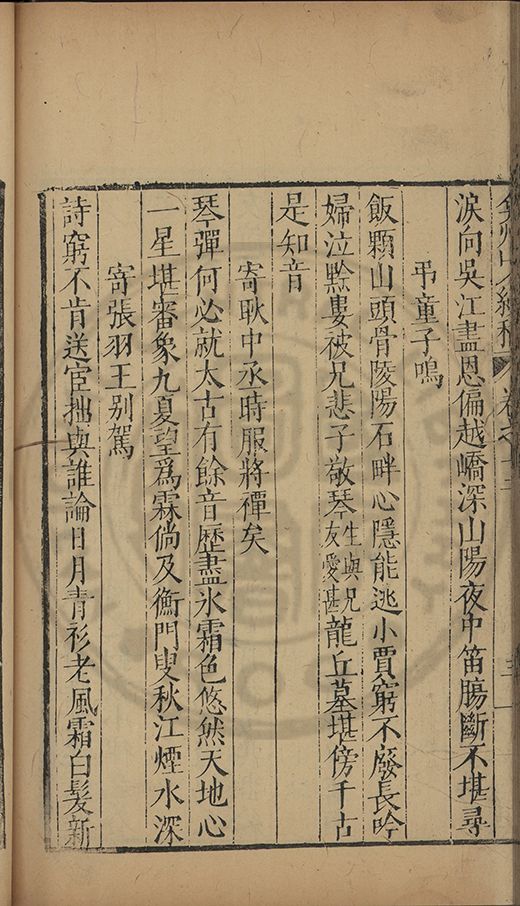 淚向吳江盡恩偏越嶠深山陽夜中笛腸斷不堪尋
弔童子鳴
飯顆山頭骨陵陽石畔心隱能逃小賈窮不廢長吟
婦泣黔婁被兄悲子敬琴生與兄友愛甚龍丘墓堪傍千古
是知音
寄耿中丞時服將禫矣
琴彈何必就太古有餘音歷盡氷霜色悠然天地心
一星堪審象九夏望爲霖倘及衡門叟秋江煙水深
寄張羽王别駕
詩窮不肯送宦拙與誰論日月青衫老風霜白髮新